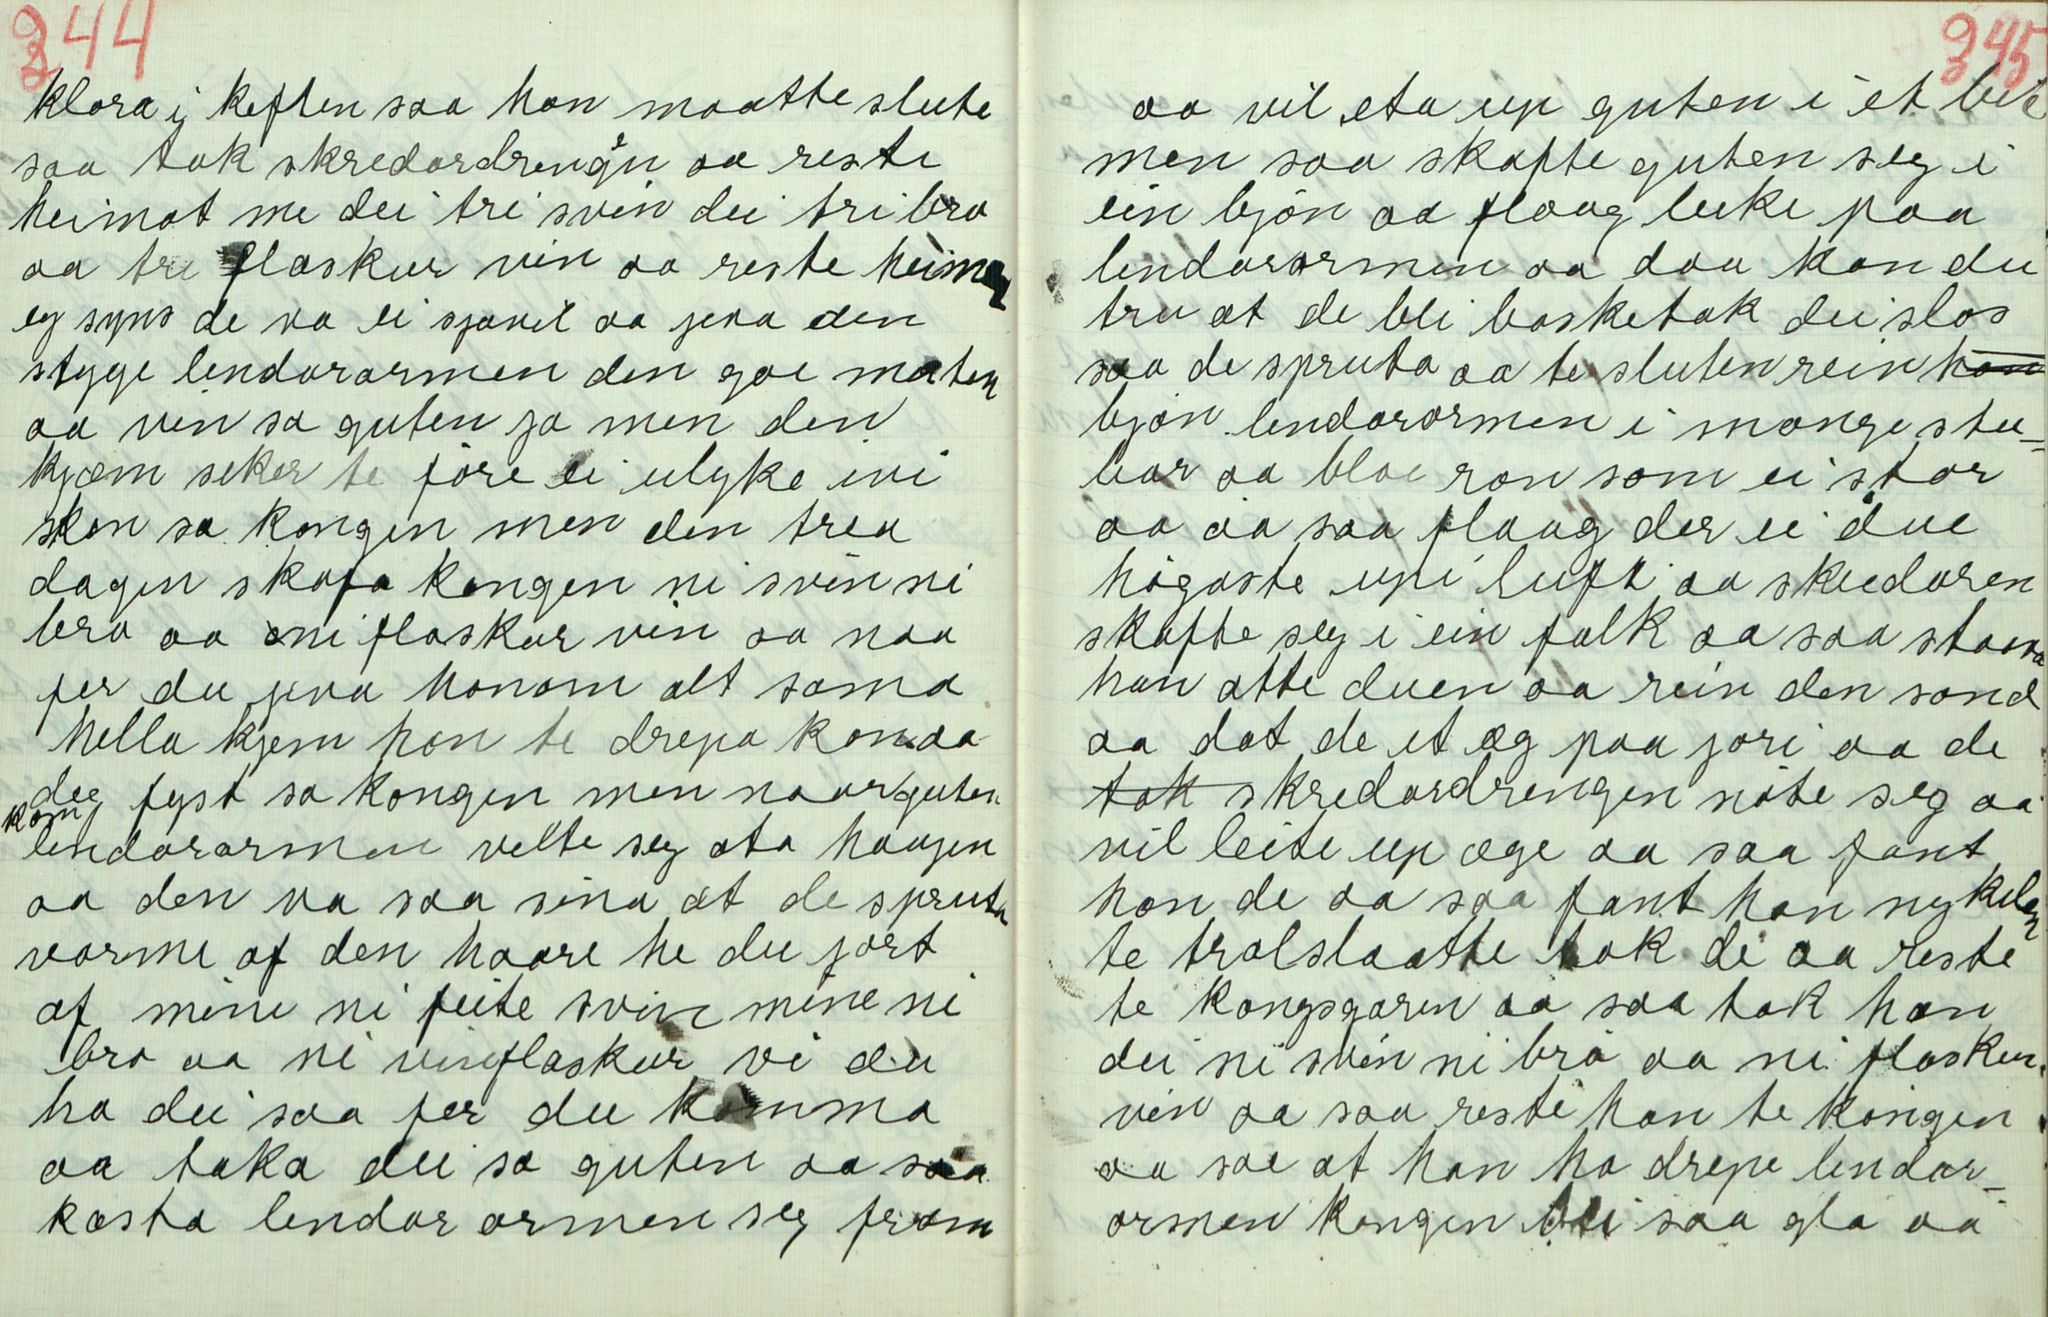 344
klora i keften saa han maatte slute
saa tok skredardrengjn aa reste
heimat me dei tri svin dei tri bra
aa tri flaskur vin aa reste heim
eg syns de va ei sjavil aa jeva den
stygge lendarormen den goe maten
aa vin sa guten ja men den
kjæm seker te føre ei ulyke ivi
sken sa kongen men den trea
dagen skafa kongen ni svin ni
bra aa ni flaskur vin sa naa
fer du jeva honom alt sama
hella kjem han te drepa kan aa
deg fyst sa kongen men naar guten
kom
lendarormen velte seg ata haugen
aa den va saa sina at de spruta
varme af den haare he du jort
af mine ni feite svin mine ni
bra aa ni vinflaskur vi du
ha dei saa fer du komma
aa taka dei sa guten aa saa
kasta lendar ormen seg fram
345
aa vil eta up guten i et bit
men saa skafte guten seg i
ein bjøn aa flaag beike paa
lendarormen aa daa kan du
tru at de bli basketak dei slos
saa de spruta aa te sluten rein han
bjøn lendarormen i mange stu-
bar aa bloe ran som ei stor
aa aa saa flaug der ei due
høgaste upi luft aa skredaren
skafte seg i ein falk aa saa støva
han atte duen aa rein den sond
aa dat de et æg paa jori aa de
tok skredardrengen nøte seg aa
vil leite up æge aa saa fant
han de aa saa fant han nykelen
te trolslaatte tok de aa reste
te kongsgaren aa saa tok han
dei ni svin ni bra aa ni flaskur
vin aa saa reste han te kongen
aa sae at han ha drepe lendar-
ormen kongen blei saa gla aa